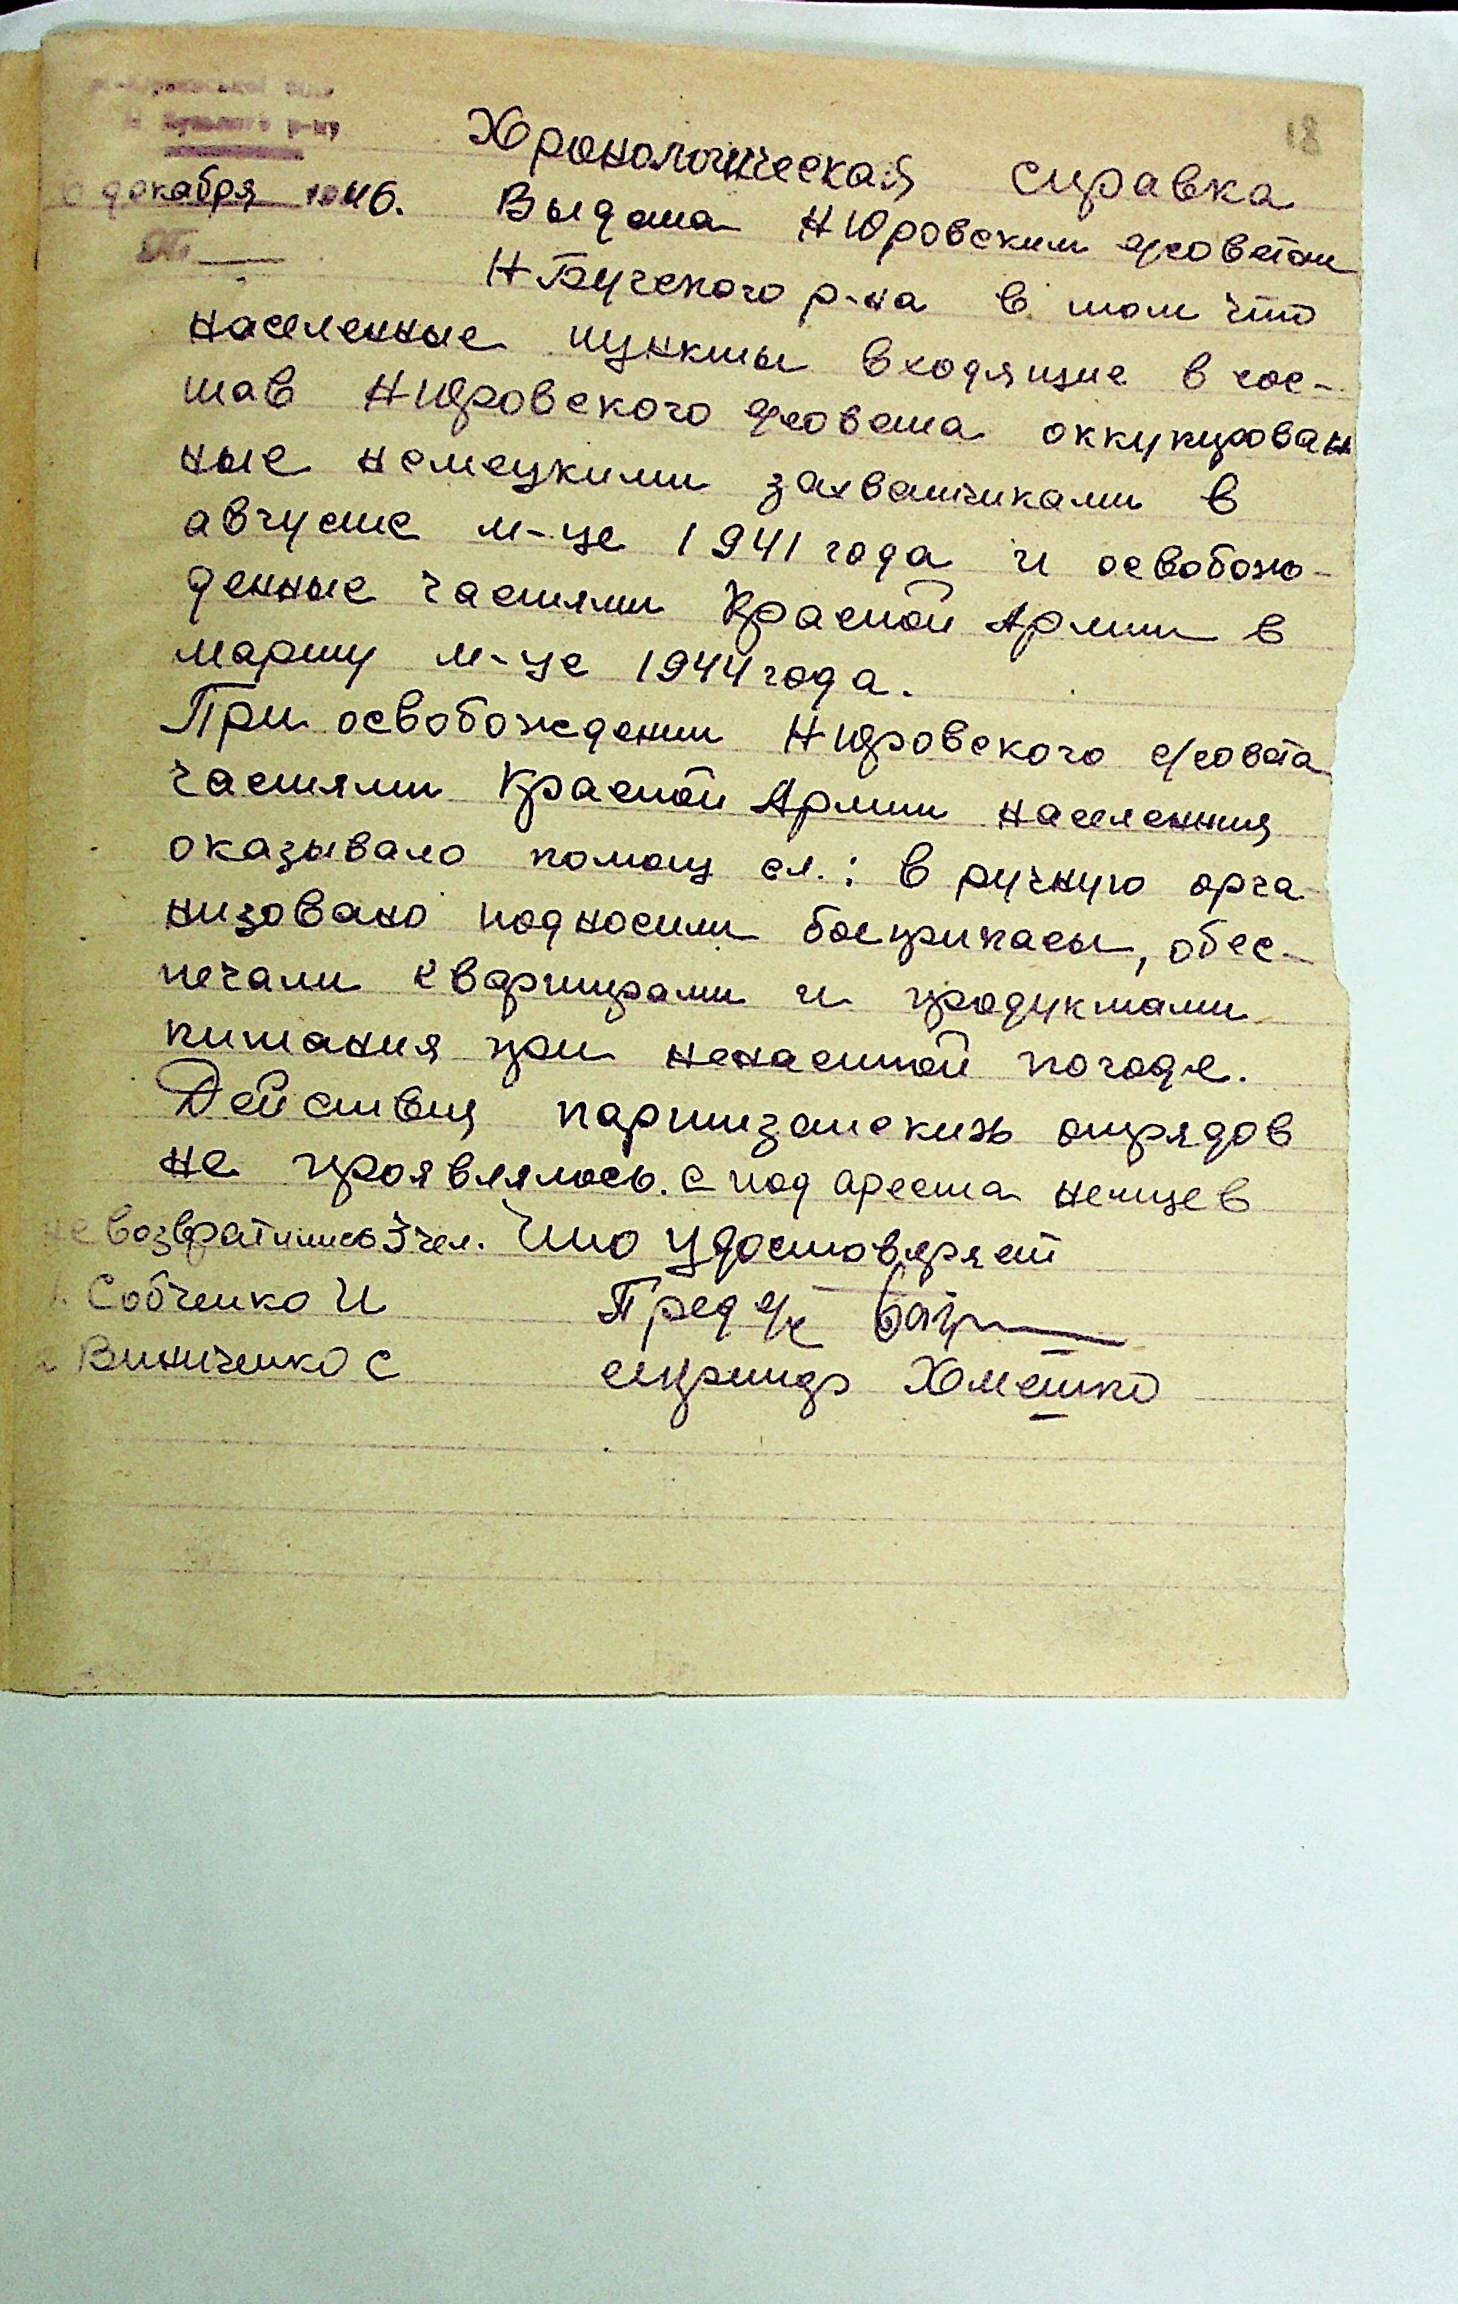 18
р-ну
Хронологическая справка
декабря 1946. Выдана НЮровским с/советом
Н Бугского р-на в том что
населенные пункты входящие в сос-
тав НЮровского с/совета оккупирован
ные немецкими захватчиками в
августе м-це 1941 года и освобож-
денные частями Красной Армии в
марту м-це 1944 года.
При освобождении НЮровского с/совета
частями Красной Армии населенния
оказывало помощ сл.: в ручную орга
низовано подносили боеприпасы, обес-
печали квартирами и продуктами
питания при ненастной погоде.
Действия партизанских отрядов
не проявлялось. с под ареста немцев
не возвратились 3 чел. Что удостоверяет
1. Собченко И Пред с/с
2 Виниченко С секритар Хоменко